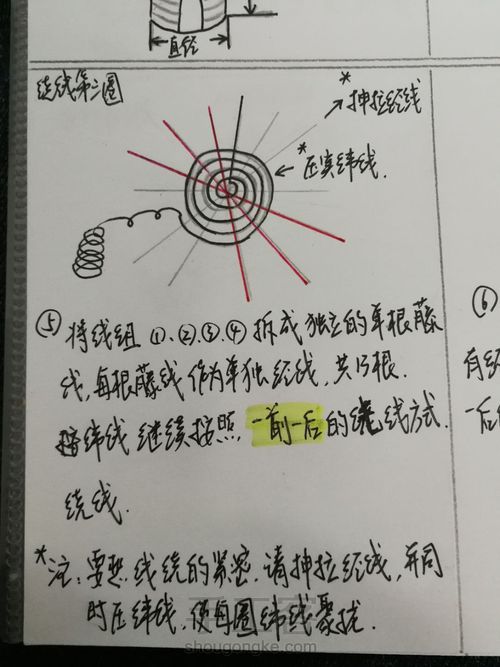 直径
绕线第二圈
*抻拉经线
*压实纬线.
⑤ 将线组 ①.②.③.④ 拆成独立的单根藤
线,每根藤线作为单独经线,共15根.
纬线继续按照 一前一后的绕线方式.
绕线.
⑥
有经
一后
*注:要想线绕的紧密.请抻拉经线,并同
时压纬线.使每圈纬线聚拢.
shougongke.com